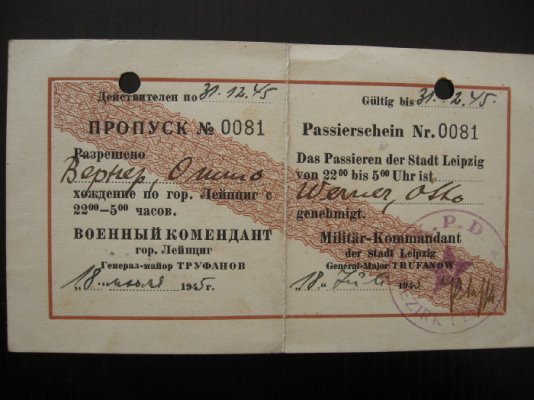 Действителен по 31.12.45
ПРОПУСК № 0081
Разрешено
Вернер, Отто
хождение по гор. Лейпциг с
22⁰⁰—5⁰⁰ часов.
ВОЕННЫЙ КОМЕНДАНТ
гор. Лейпциг
Генерал-майор ТРУФАНОВ
"18" июля 1945 г.
Gültig bis 31.12.45.
Passierschein Nr. 0081
Das Passieren der Stadt Leipzig
von 22⁰⁰ bis 5⁰⁰ Uhr ist
Werner, Otto
genehmigt.
Militär-Kommandant
der Stadt Leipzig
General-Major TRUFANOW
"18." Juli 1945
P. D.